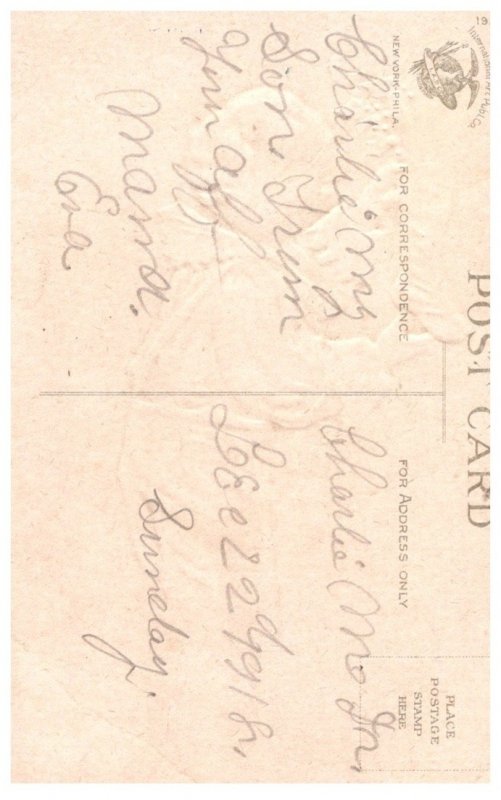 19
International Art Publ. Co
NEW YORK-PHILA.
POST CARD
FOR CORRESPONDENCE
FOR ADDRESS ONLY
PLACE
POSTAGE
STAMP
HERE
Charlie My
Son From
Your aff
Mama.
Eva
Charlie Mc Jr,
Dec 22 1918,
Sunday.